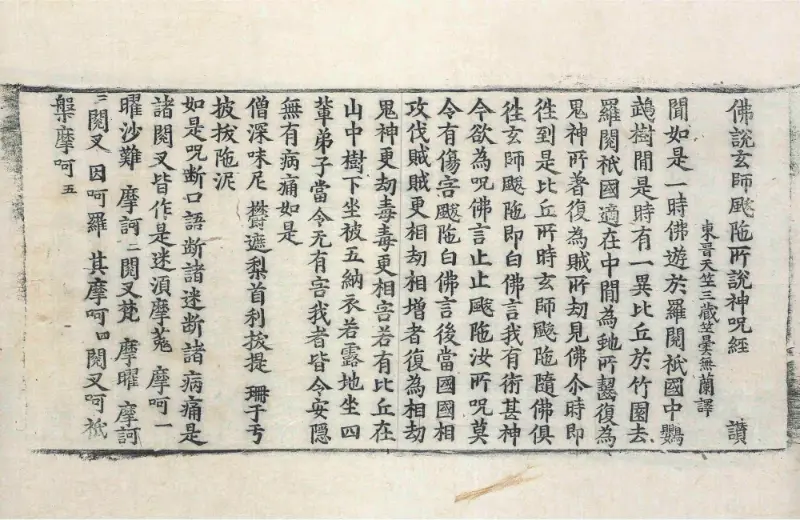 佛說玄師颰陁所說神呪經 讚
東晉天竺三藏竺曇無蘭譯
聞如是一時佛遊於羅閱祇國中鸚
鵡樹間是時有一異比丘於竹園去
羅閱祇國適在中間為虵所齧復為
鬼神所著復為賊所劫見佛尒時即
徃到是比丘所時玄師颰陁隨佛俱
徃玄師颰陁即白佛言我有術甚神
今欲為呪佛言止止颰陁汝所呪莫
令有傷害颰陁白佛言後當國國相
攻伐賊賊更相劫相增者復為相劫
鬼神更劫毒毒更相害若有比丘在
山中樹下坐被五納衣若露地坐四
輩弟子當令无有害我者皆令安隱
無有病痛如是
僧深味尼 欝遮梨首利拔提 珊于丐
披拔陁泥
如是呪断口語断諸迷断諸病痛是
諸閱叉皆作是迷湏摩 摩呵一
曜沙難 摩訶二閱叉 摩曜 摩訶
三閱叉 因呵羅 其摩呵四閱叉呵祇
槃摩呵五